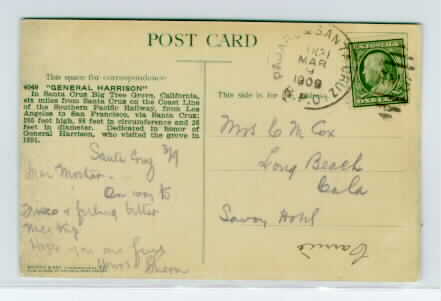 POST CARD
This space for correspondence
This side is for address
4049 "GENERAL HARRISON"
In Santa Cruz Big Tree Grove, California,
six miles from Santa Cruz on the Coast Line
of the Southern Pacific Railway, from Los
Angeles to San Francisco, via Santa Cruz;
265 feet high, 88 feet in circumference and 26
feet in diameter. Dedicated in honor of
General Harrison, who visited the grove in
1891.
PAJARO & SANTA CRUZ
MAR
9
1909
R.P.O.
Santa Cruz 3/9
Dear Mother -
On way to
Frisco & feeling better
Hope you are
Yours
Mrs C M Cox
Long Beach
Cala
Savoy Hotel
Carrie